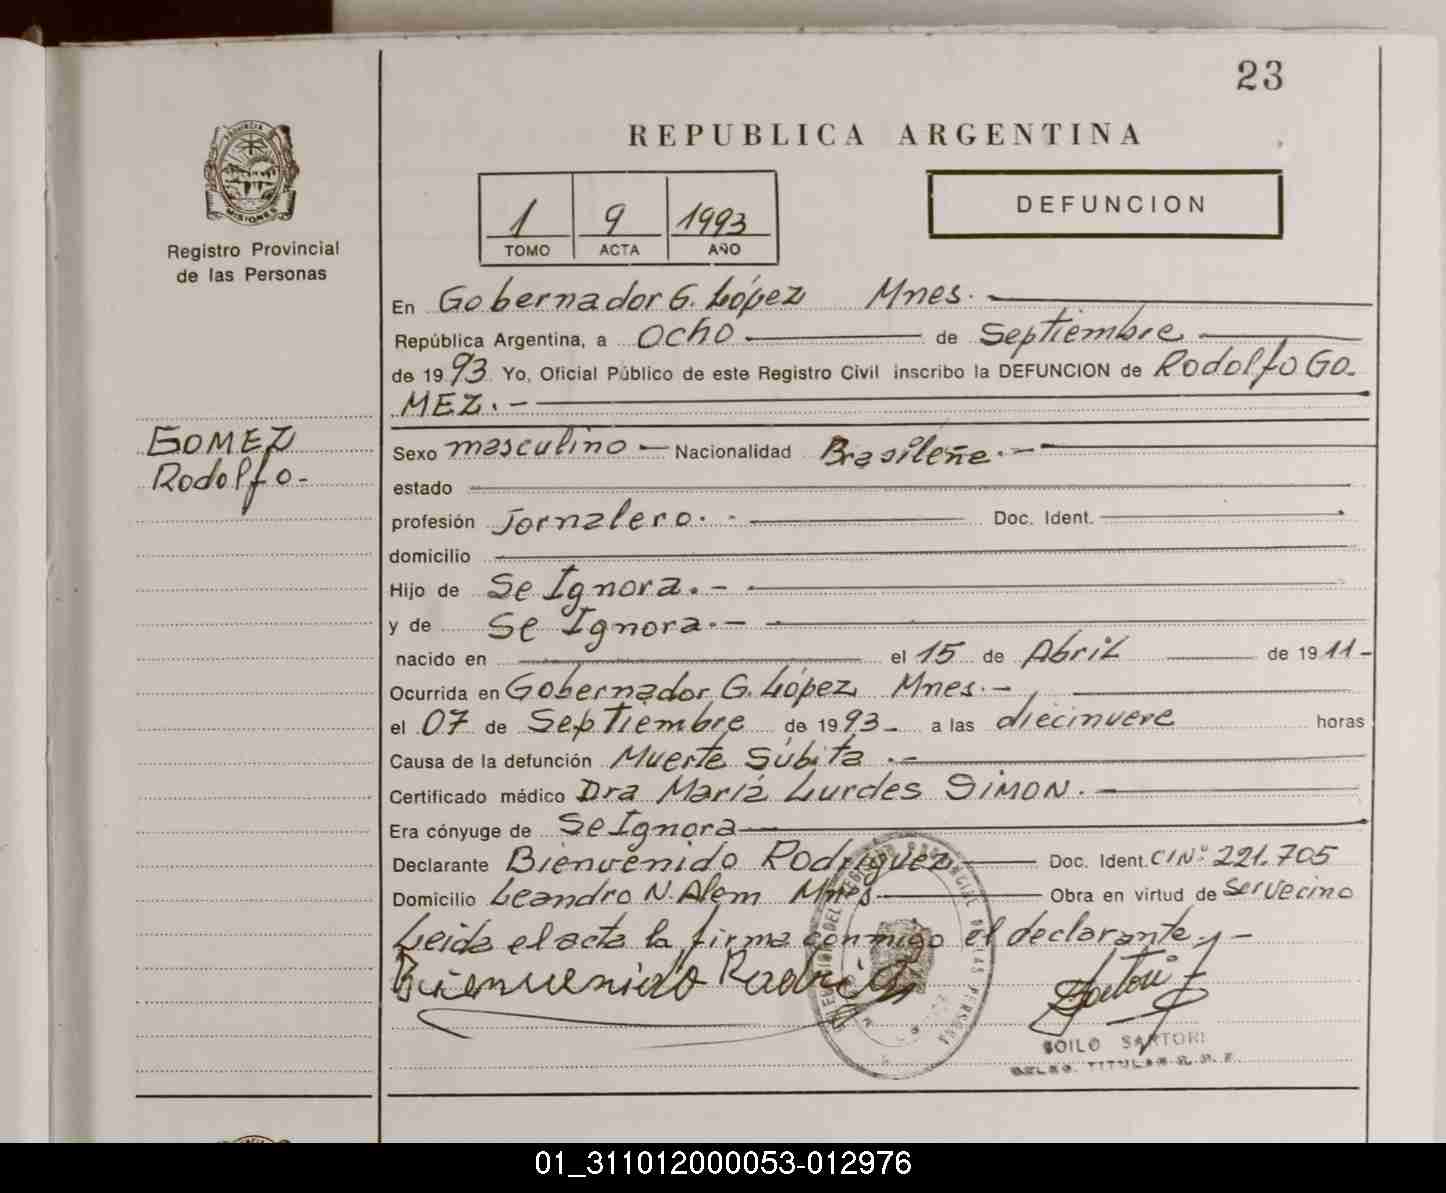 23
REPUBLICA ARGENTINA
PROVINCIA
MISIONES
Registro Provincial
de las Personas
1 9 1993
TOMO ACTA AÑO
DEFUNCION
En Gobernador G. López Mnes.
República Argentina, a ocho de Septiembre
de 1993 Yo, Oficial Público de este Registro Civil inscribo la DEFUNCION de Rodolfo GO-
MEZ.-
GOMEZ
Rodolfo-
Sexo masculino - Nacionalidad Brasileña.-
estado
profesión Jornalero.- Doc. Ident.
domicilio
Hijo de Se Ignora.-
y de Se Ignora.-
nacido en el 15 de Abril de 1911-
Ocurrida en Gobernador G. López Mnes.-
el 07 de Septiembre de 1993- a las diecinueve horas
Causa de la defunción Muerte Súbita.-
Certificado médico Dra María Lurdes SIMON.-
Era cónyuge de Se Ignora
Declarante Bienvenido Rodriguez Doc. Ident. CIN° 221.705
Domicilio Leandro N. Alem Mnes Obra en virtud de ser vecino
Leida el acta la firma conmigo el declarante.-
Bienvenido
Sartori
SOILO SARTORI
TITULAR
01_311012000053-012976